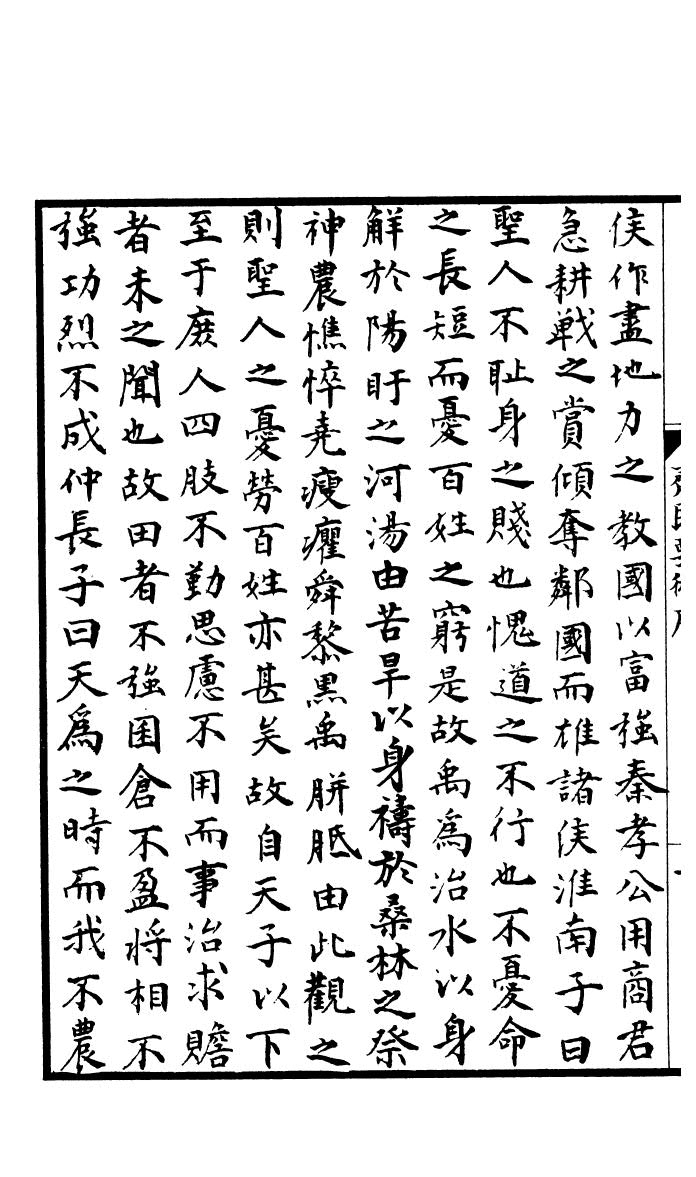 侯作盡地力之教國以富強秦孝公用商君
急耕戦之賞傾奪鄰國而雄諸侯淮南子曰
聖人不耻身之賤也愧道之不行也不憂命
之長短而憂百姓之窮是故禹為治水以身
解於陽盱之河湯由苦旱以身禱於桑林之祭
神農憔悴堯瘦癯舜黎黑禹胼胝由此觀之
則聖人之憂勞百姓亦甚矣故自天子以下
至于庶人四肢不勤思慮不用而事治求贍
者未之聞也故田者不強囷倉不盈将相不
強功烈不成仲長子曰天為之時而我不農